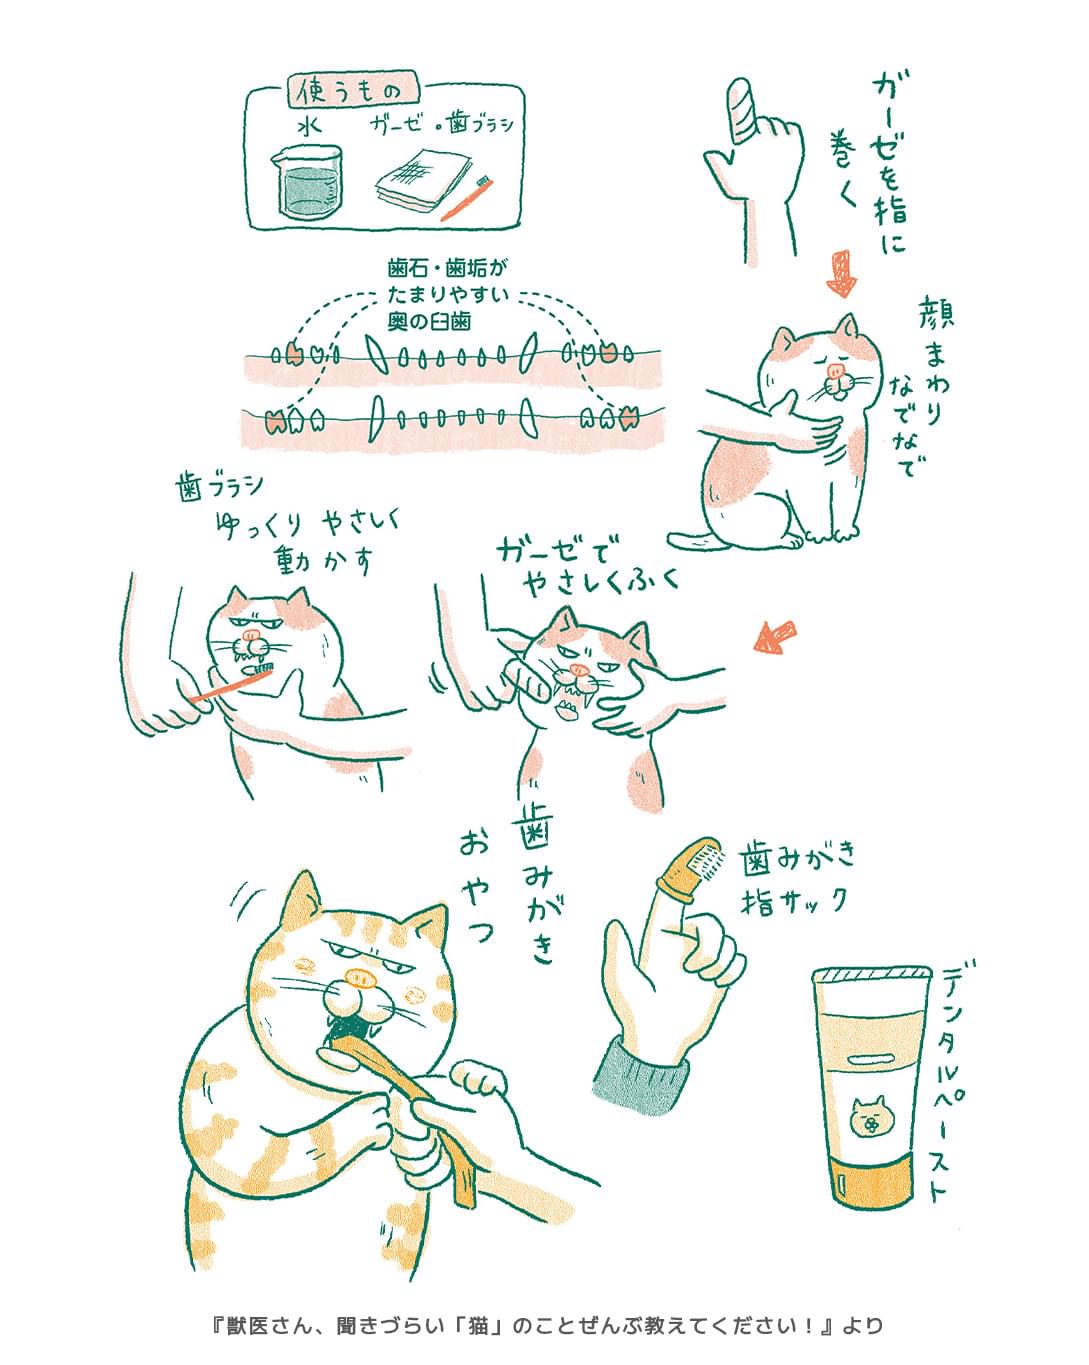 使うもの
水
ガーゼ・歯ブラシ
ガーゼを指に
巻く
歯石・歯垢が
たまりやすい
奥の臼歯
顔まわり
なでなで
ガーゼで
やさしくふく
歯ブラシ
ゆっくり やさしく
動かす
歯みがき
おやつ
歯みがき
指サック
デンタルペースト
『獣医さん、聞きづらい「猫」のことぜんぶ教えてください！』より